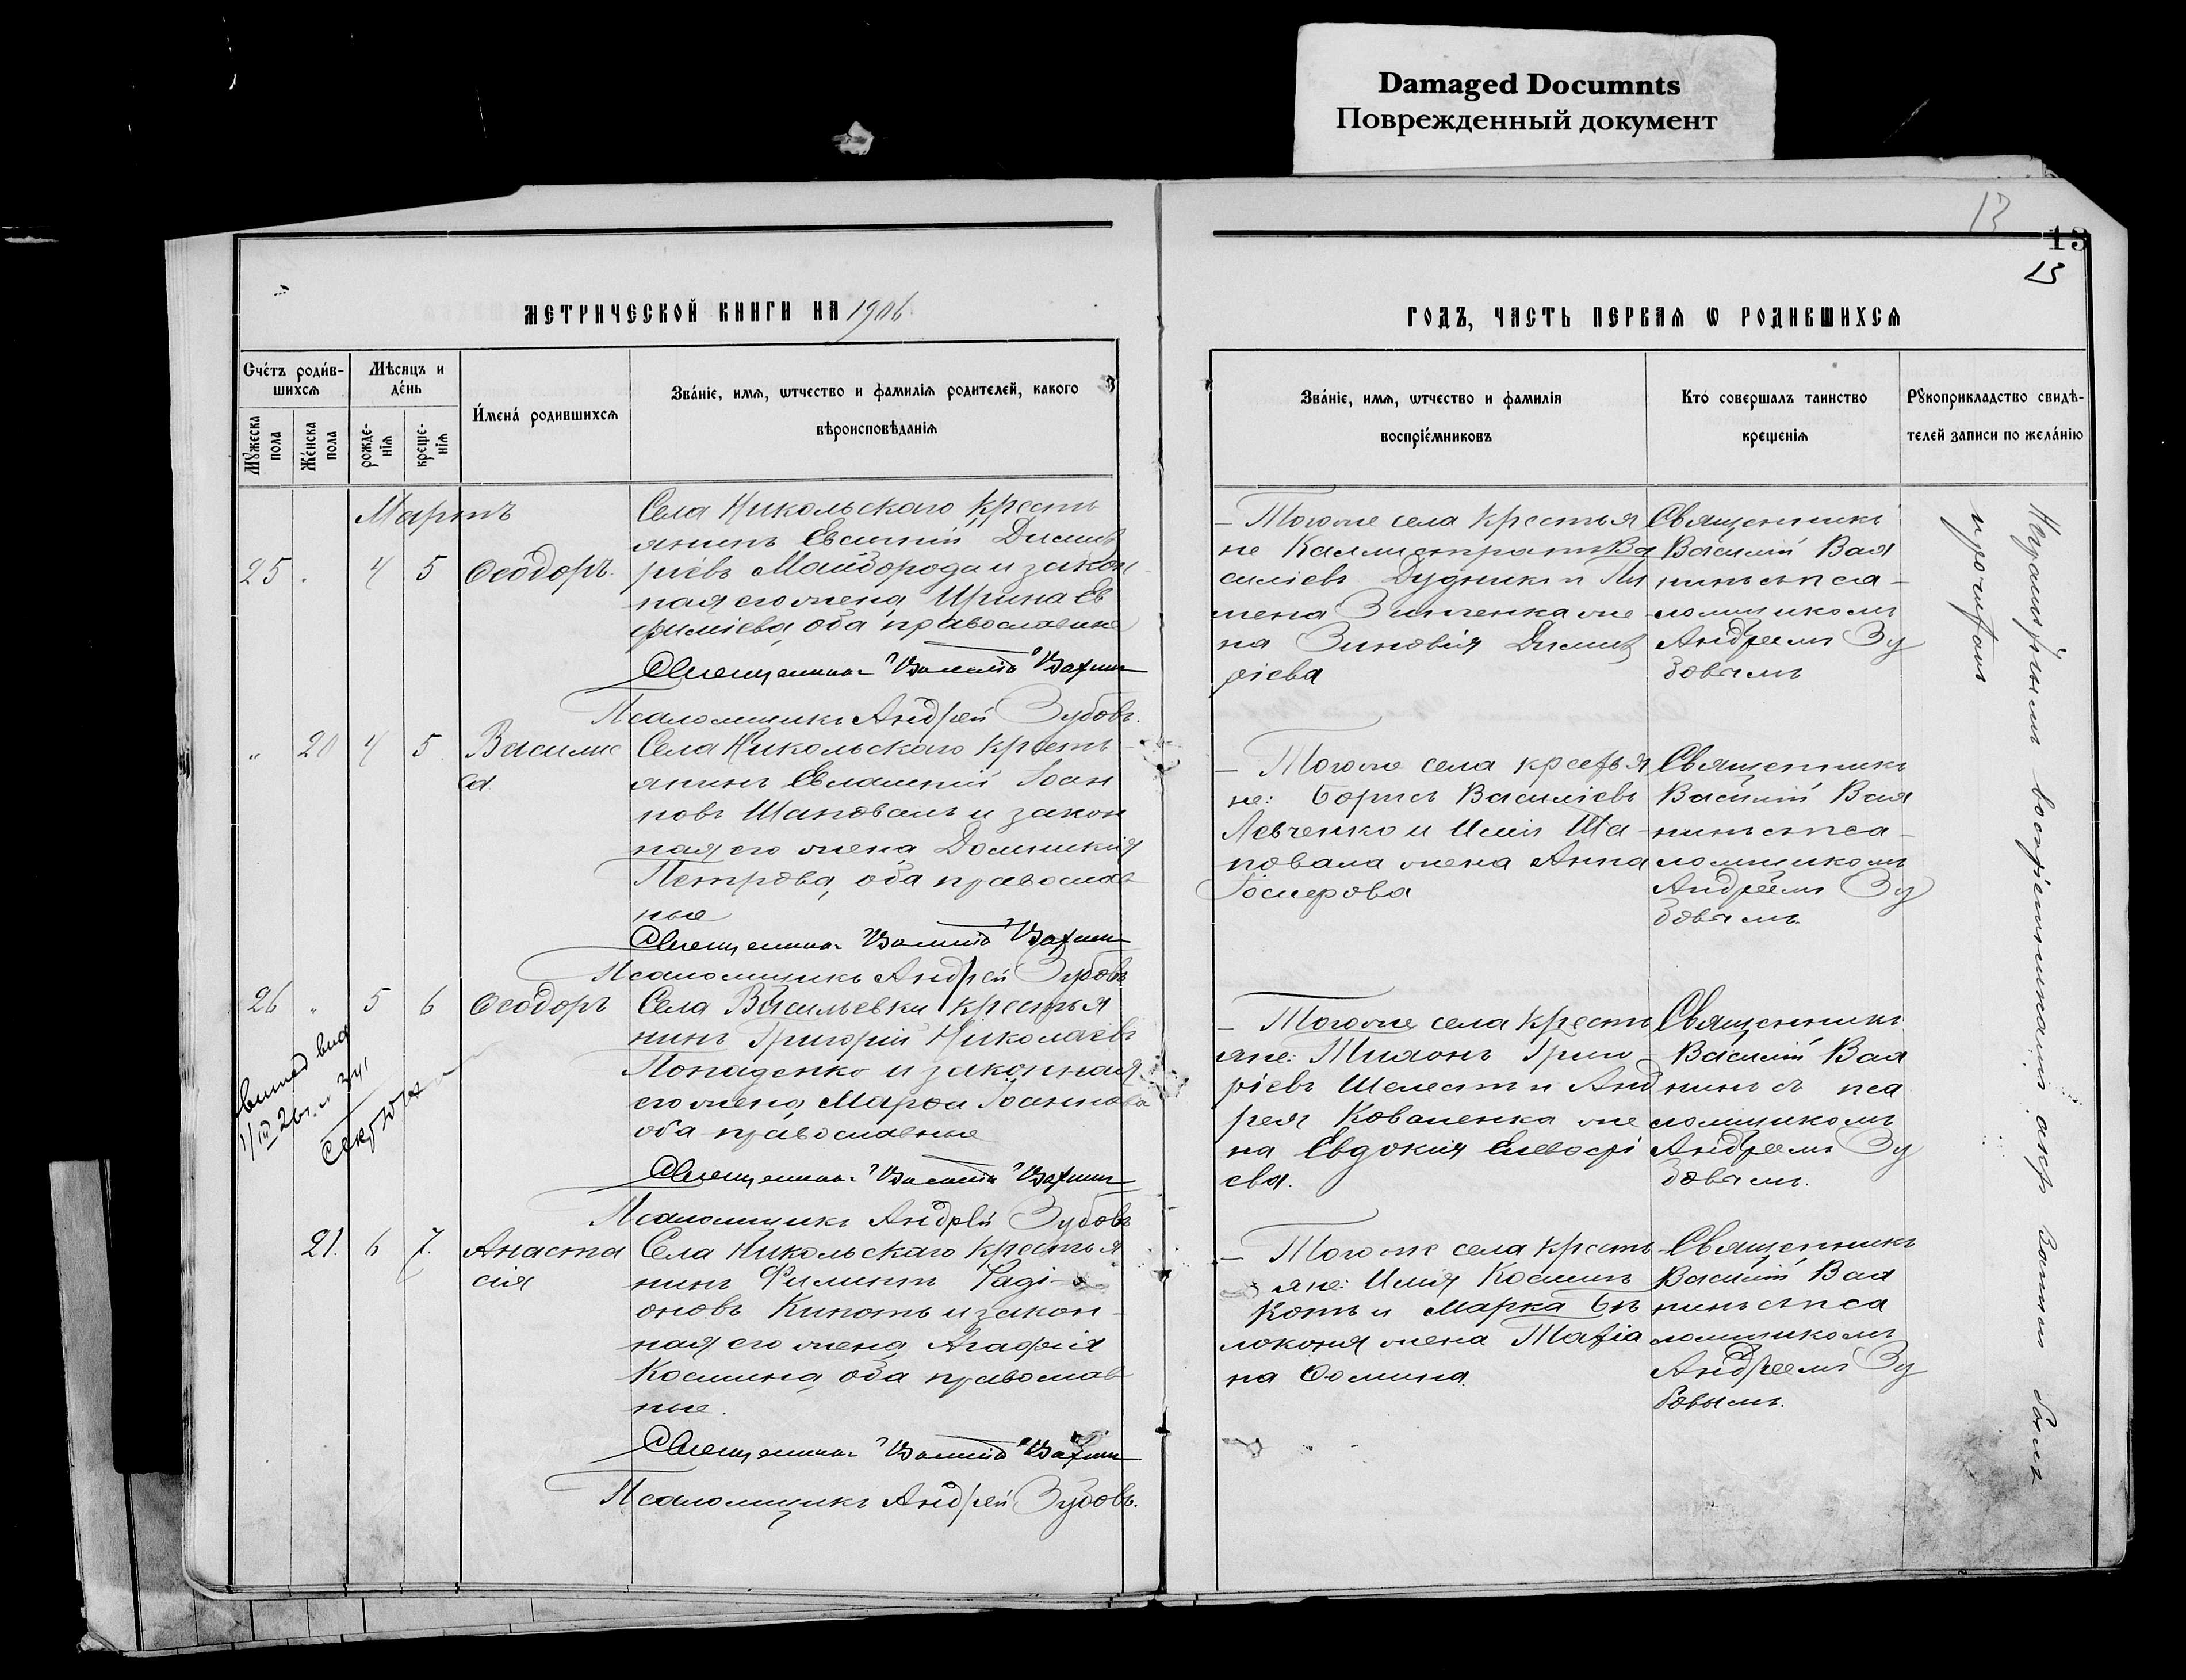 Damaged Documnts
Поврежденный документ
13
13
13
МЕТРИЧЕСКОЙ КНИГИ НА 1906
ГОДЪ, ЧАСТЬ ПЕРВАЯ Ѡ РОДИВШИХСЯ
Счéтъ роди́в-
шихсѧ
Мѣсѧцъ и
дéнь
Мꙋжеска
пола
Жéнска
пола
рожде-
нїѧ
креще-
нїѧ
И́менá родившихсѧ
Звáнїе, имѧ, ѿчество и фамилїѧ родителей, какого
вѣроисповѣданїѧ
Звáнїе, имѧ, ѿчество и фамилїѧ
воспрїéмниковъ
Ктó совершалъ таинство
крещенїѧ
Рꙋкоприкладство свидѣ-
телей записи по желáнїю
Мартъ
25 " 4 5 Ѳеодоръ.
Села Никольскаго кресть
янинъ Евсигній Димит
ріевъ Майборода и закон
ная его жена Ирина Ев
фиміева, оба православные
Священникъ Василій
Псаломщикъ Андрей Зубовъ.
– Тогоже села крестья
не Каллистратъ Ва
силіевъ Дудникъ и Пи
мена Зинченка же
на Зиновія Димит
ріева
Священникъ
Василій
съ пса-
ломщикомъ
Андреемъ Зу
бовымъ
" 20 4 5 Василис
са.
Села Никольскаго кресть
янинъ Евлампій Іоан
новъ Шаповалъ и закон
ная его жена Домникія
Петрова, оба православ
ные
Священникъ Василій
Псаломщикъ Андрей Зубовъ
– Тогоже села крестья
не: Борисъ Василіевъ
Левченко и Иліи Ша-
повала жена Анна
Священникъ
Василій
съ пса-
ломщикомъ
Андреемъ Зу
бовымъ.
26 " 5 6 Ѳеодоръ
Села Васильевки крестья
нинъ Григорій Николаевъ
Попаденко и законная
его жена Марѳа Іоаннова
оба православные
Священникъ Василій
Псаломщикъ Андрей Зубовъ
– Тогоже села кресть
яне: Тихонъ Григо
ріевъ Шелестъ и Анд
рея Коваленка же
на Евдокія Елевѳері
ева.
Священникъ
Василій
съ пса
ломщикомъ
Андреемъ Зу
бовымъ.
21. 6 7. Анаста
сія
Села Никольскаго крестья
нинъ Филиппъ Раді-
оновъ Кнпоть и закон-
ная его жена Агафія
Космина, оба православ
ные.
Священникъ Василій
Псаломщикъ Андрей Зубовъ.
– Тогоже села кресть
яне: Илія Косминъ
Котъ и Марка Бѣ
локоня жена Татіа
на Ѳомина.
Священникъ
Василій
съ пса
ломщикомъ
Андреемъ Зу
бовымъ.
Неграмотнымъ воспріемникамъ актъ
прочитанъ